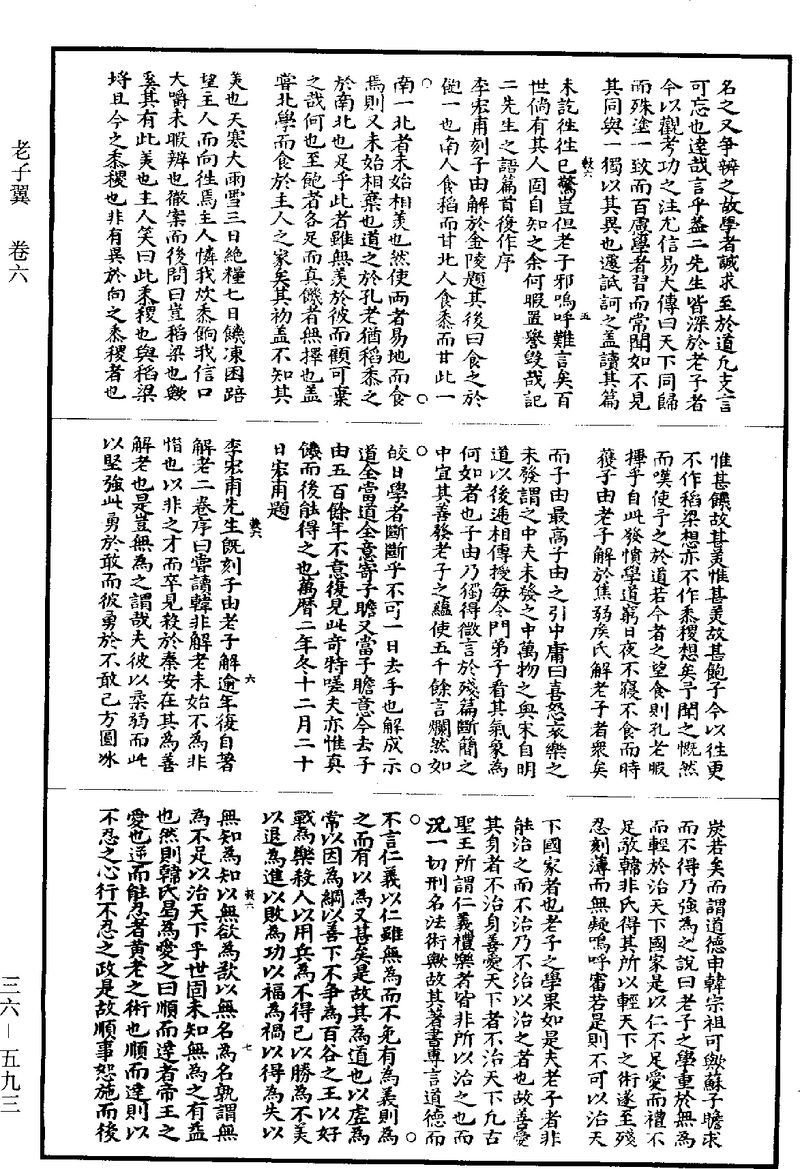 老子翼　卷六
名之又爭辨之故學者誠求至於道凡支言
可忘也達哉言乎蓋二先生皆深於老子者
今以觀考功之注尤信易大傳曰天下同歸
而殊塗一致而百慮學者習而常聞如不見
其同與一獨以其異也遞詆訶之蓋讀其篇
未訖徃徃已驚豈但老子邪嗚呼難言矣百
世倘有其人固自知之余何暇置譽毀哉記
二先生之語篇首後作序
李宏甫刻子由解於金陵題其後曰食之於
飽一也南人食稻而甘北人食黍而甘此一
南一北者未始相羨也然使兩者易地而食
焉則又未始相棄也道之於孔老猶稻黍之
於南北也足乎此者雖無羨於彼而顧可棄
之哉何也至飽者各足而真饑者無擇也蓋
嘗北學而食於主人之家矣其初蓋不知其
美也天寒大雨雪三日絶糧七日饑凍困踣
望主人而向徃焉主人憐我炊黍餉我信口
大嚼未暇辨也徹案而後問曰豈稻梁也歟
奚其有此美也主人笑曰此黍稷也與稻梁
埒且今之黍稷也非有異於向之黍稷者也
惟甚饑故甚美惟甚美故甚飽子今以往更
不作稻梁想亦不作黍稷想矣予聞之慨然
而嘆使予之於道若今者之望食則孔老暇
擇乎自此發憤學道窮日夜不寢不食而時
獲子由老子解於焦弱侯氏解老子者衆矣
而子由最高子由之引中庸曰喜怒哀樂之
未發謂之中夫未發之中萬物之奥宋自明
道以後遞相傳授每令門弟子看其氣象為
何如者也子由乃獨得微言於殘篇斷簡之
中宜其善發老子之藴使五千餘言爛然如
皎日學者斷斷乎不可一日去手也解成示
道全當道全意寄子瞻又當子瞻意今去子
由五百餘年不意復見此奇特嗟夫亦惟真
饑而後能得之也萬曆二年冬十二月二十
日宏甫題
李宏甫先生旣刻子由老子解逾年復自著
解老二卷序曰嘗讀韓非解老未始不為非
惜也以非之才而卒見殺於秦安在其為善
解老也是豈無為之謂哉夫彼以柔弱而此
以堅強此勇於敢而彼勇於不敢已方圓冰
炭若矣而謂道德申韓宗祖可歟蘇子瞻求
而不得乃強為之說曰老子之學重於無為
而輕於治天下國家是以仁不足愛而禮不
足敬韓非氏得其所以輕天下之術遂至殘
忍刻薄而無疑嗚呼審若是則不可以治天
下國家者也老子之學果如是夫老子者非
能治之而不治乃不治以治之者也故善愛
其身者不治身善愛天下者不治天下凡古
聖王所謂仁義禮樂者皆非所以治之也而
況一切刑名法術歟故其著書專言道德而
不言仁義以仁雖無為而不免有為義則為
之而有以為又甚矣是故其為道也以虛為
常以因為綱以善下不爭為百谷之王以好
戰為樂殺人以用兵為不得已以勝為不美
以退為進以敗為功以福為禍以得為失以
無知為知以無欲為欲以無名為名孰謂無
為不足以治天下乎世固未知無為之有益
也然則韓氏曷為愛之曰順而達者帝王之
愛也逆而能忍者黄老之術也順而達則以
不忍之心行不忍之政是故順事恕施而後
三六－五九三